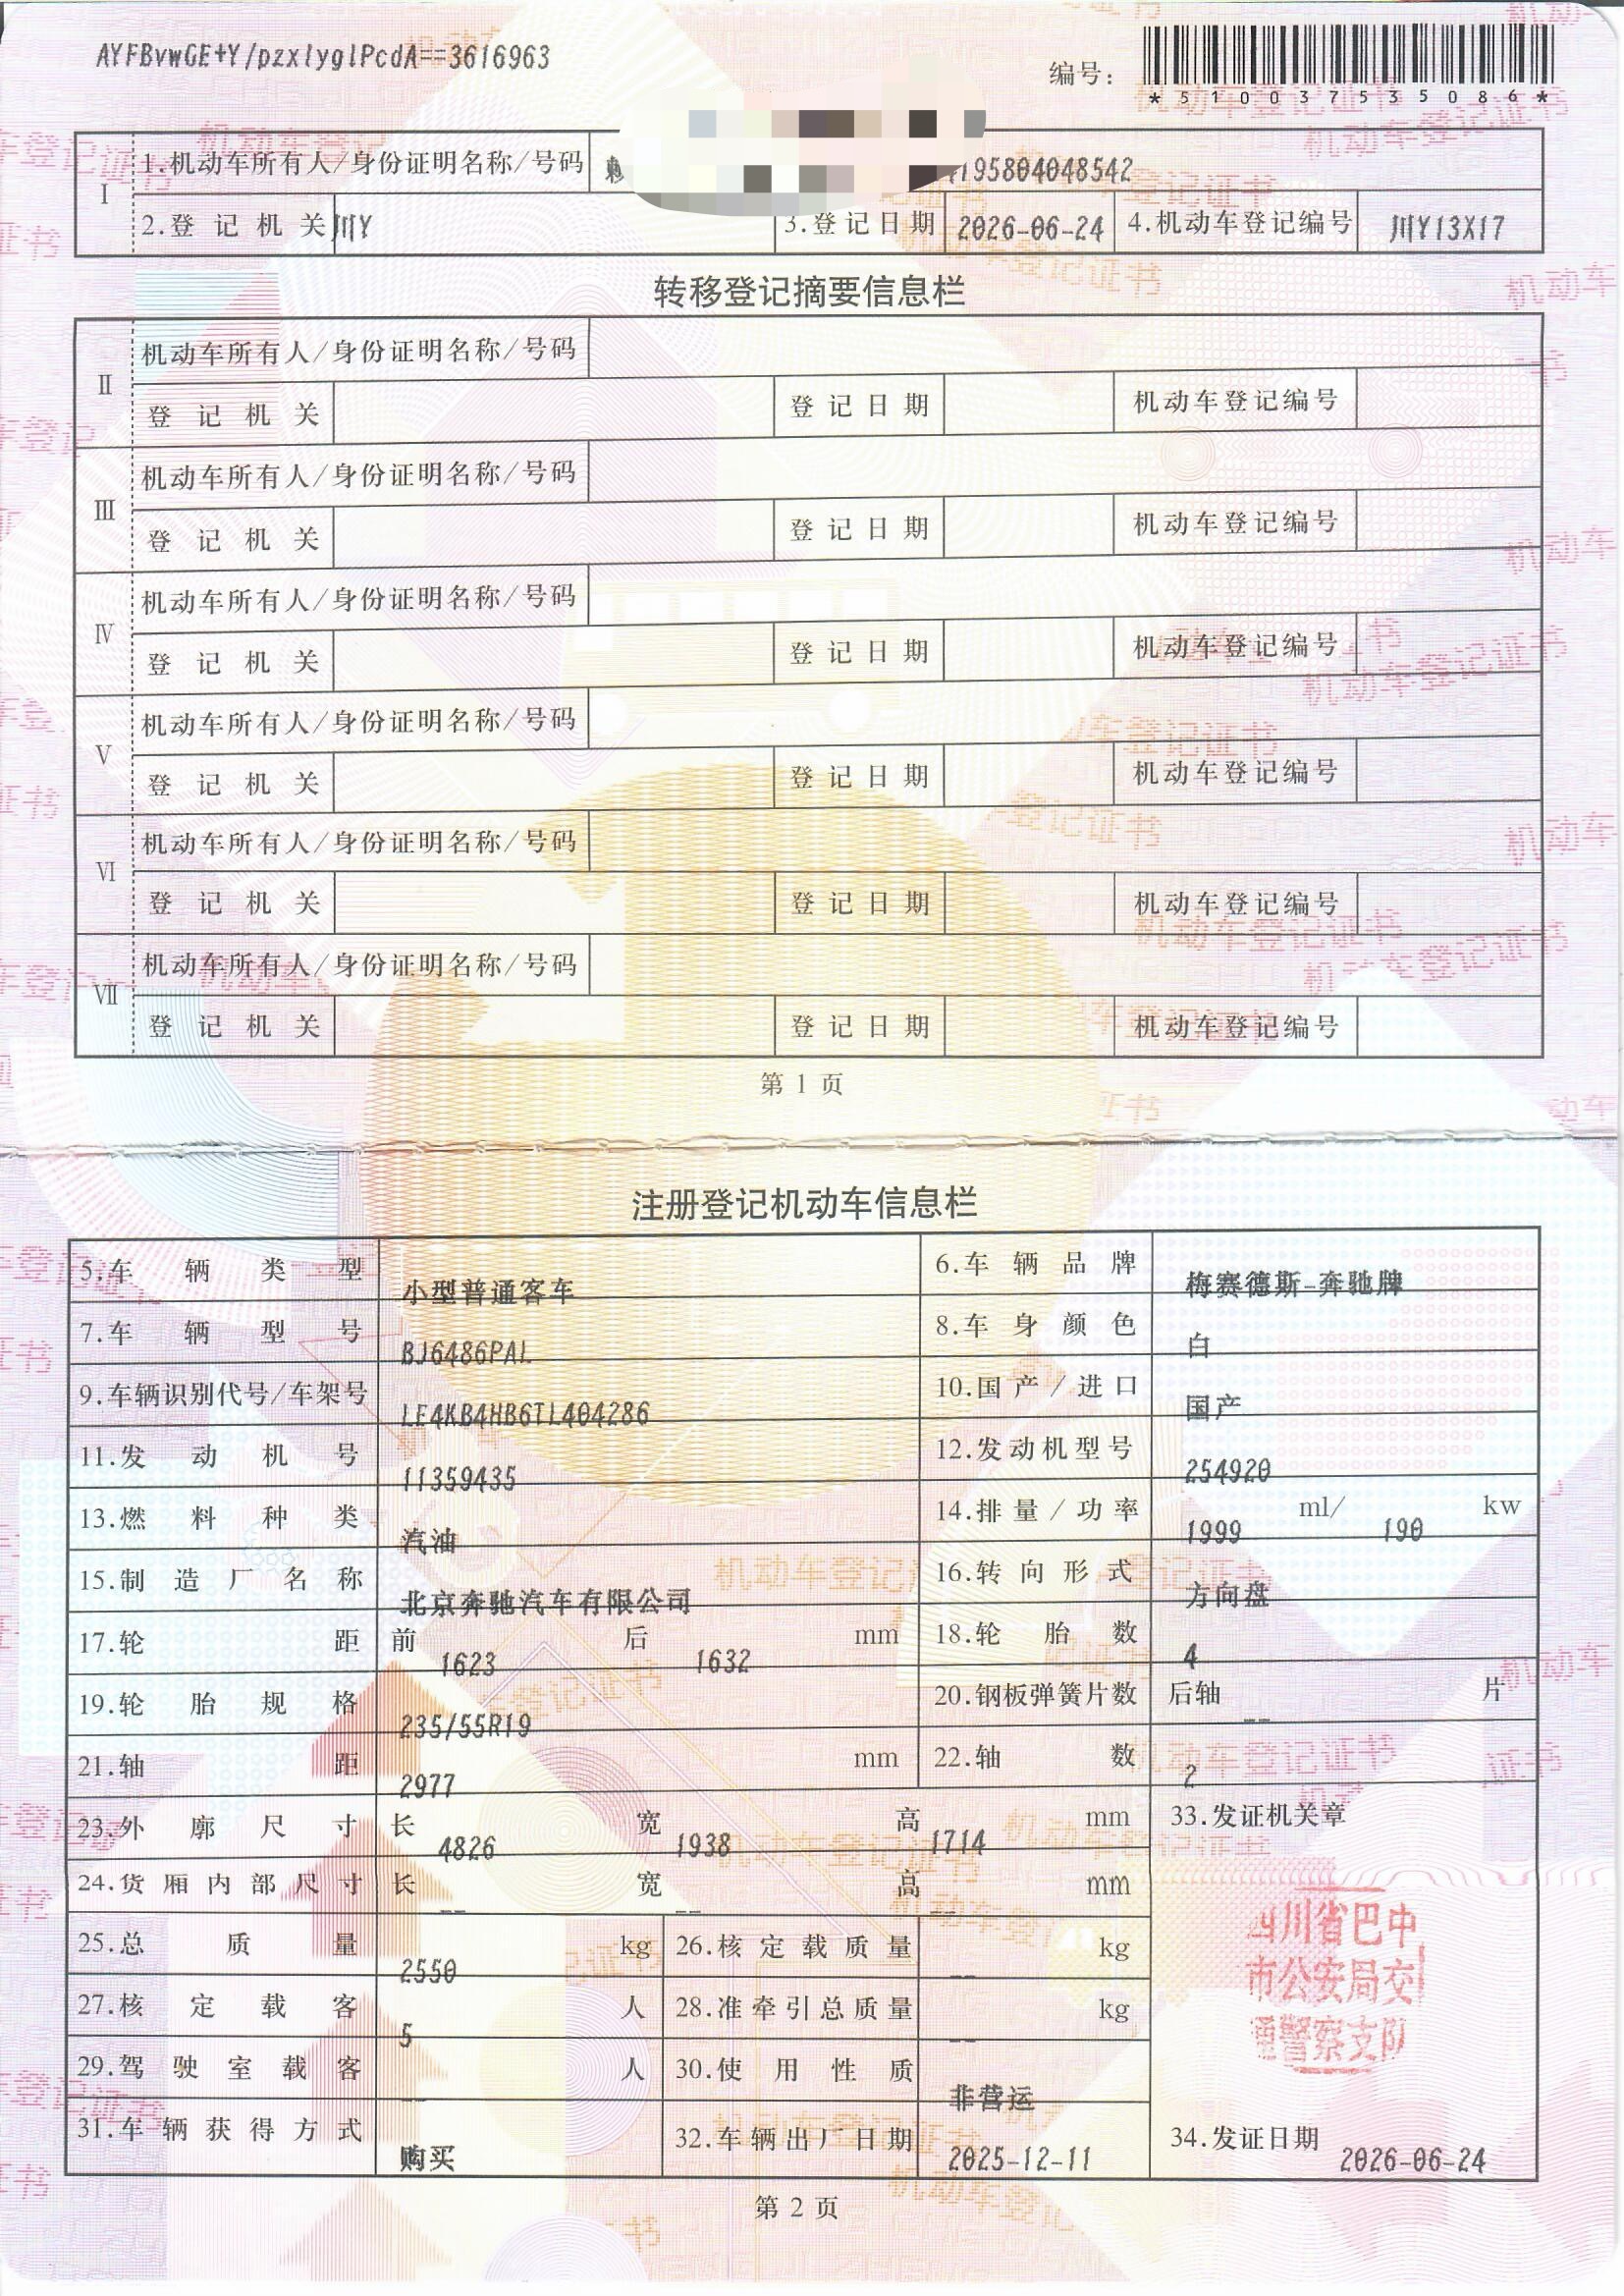 AYFBvwGE+Y/pzxlyglPcdA==3616963
编号:
*510037535086*
I
1.机动车所有人/身份证明名称/号码
195804048542
2.登记机关 川Y 3.登记日期 2026-06-24 4.机动车登记编号 川Y13X17
转移登记摘要信息栏
II
机动车所有人/身份证明名称/号码
登记机关 登记日期 机动车登记编号
III
机动车所有人/身份证明名称/号码
登记机关 登记日期 机动车登记编号
IV
机动车所有人/身份证明名称/号码
登记机关 登记日期 机动车登记编号
V
机动车所有人/身份证明名称/号码
登记机关 登记日期 机动车登记编号
VI
机动车所有人/身份证明名称/号码
登记机关 登记日期 机动车登记编号
VII
机动车所有人/身份证明名称/号码
登记机关 登记日期 机动车登记编号
第 1 页
注册登记机动车信息栏
5.车辆类型 小型普通客车 6.车辆品牌 梅赛德斯-奔驰牌
7.车辆型号 BJ6486PAL 8.车身颜色 白
9.车辆识别代号/车架号 LE4KB4HB6TL404286 10.国产/进口 国产
11.发动机号 11359435 12.发动机型号 254920
13.燃料种类 汽油 14.排量/功率 1999 ml/ 190 kw
15.制造厂名称 北京奔驰汽车有限公司 16.转向形式 方向盘
17.轮距 前 1623 后 1632 mm 18.轮胎数 4
19.轮胎规格 235/55R19 20.钢板弹簧片数 后轴 -- 片
21.轴距 2977 mm 22.轴数 2
23.外廓尺寸 长 4826 宽 1938 高 1714 mm 33.发证机关章
24.货厢内部尺寸 长 -- 宽 -- 高 -- mm
25.总质量 2550 kg 26.核定载质量 -- kg
27.核定载客 5 人 28.准牵引总质量 -- kg
29.驾驶室载客 -- 人 30.使用性质 非营运
四川省巴中
市公安局交
通警察支队
31.车辆获得方式 购买 32.车辆出厂日期 2025-12-11 34.发证日期 2026-06-24
第 2 页